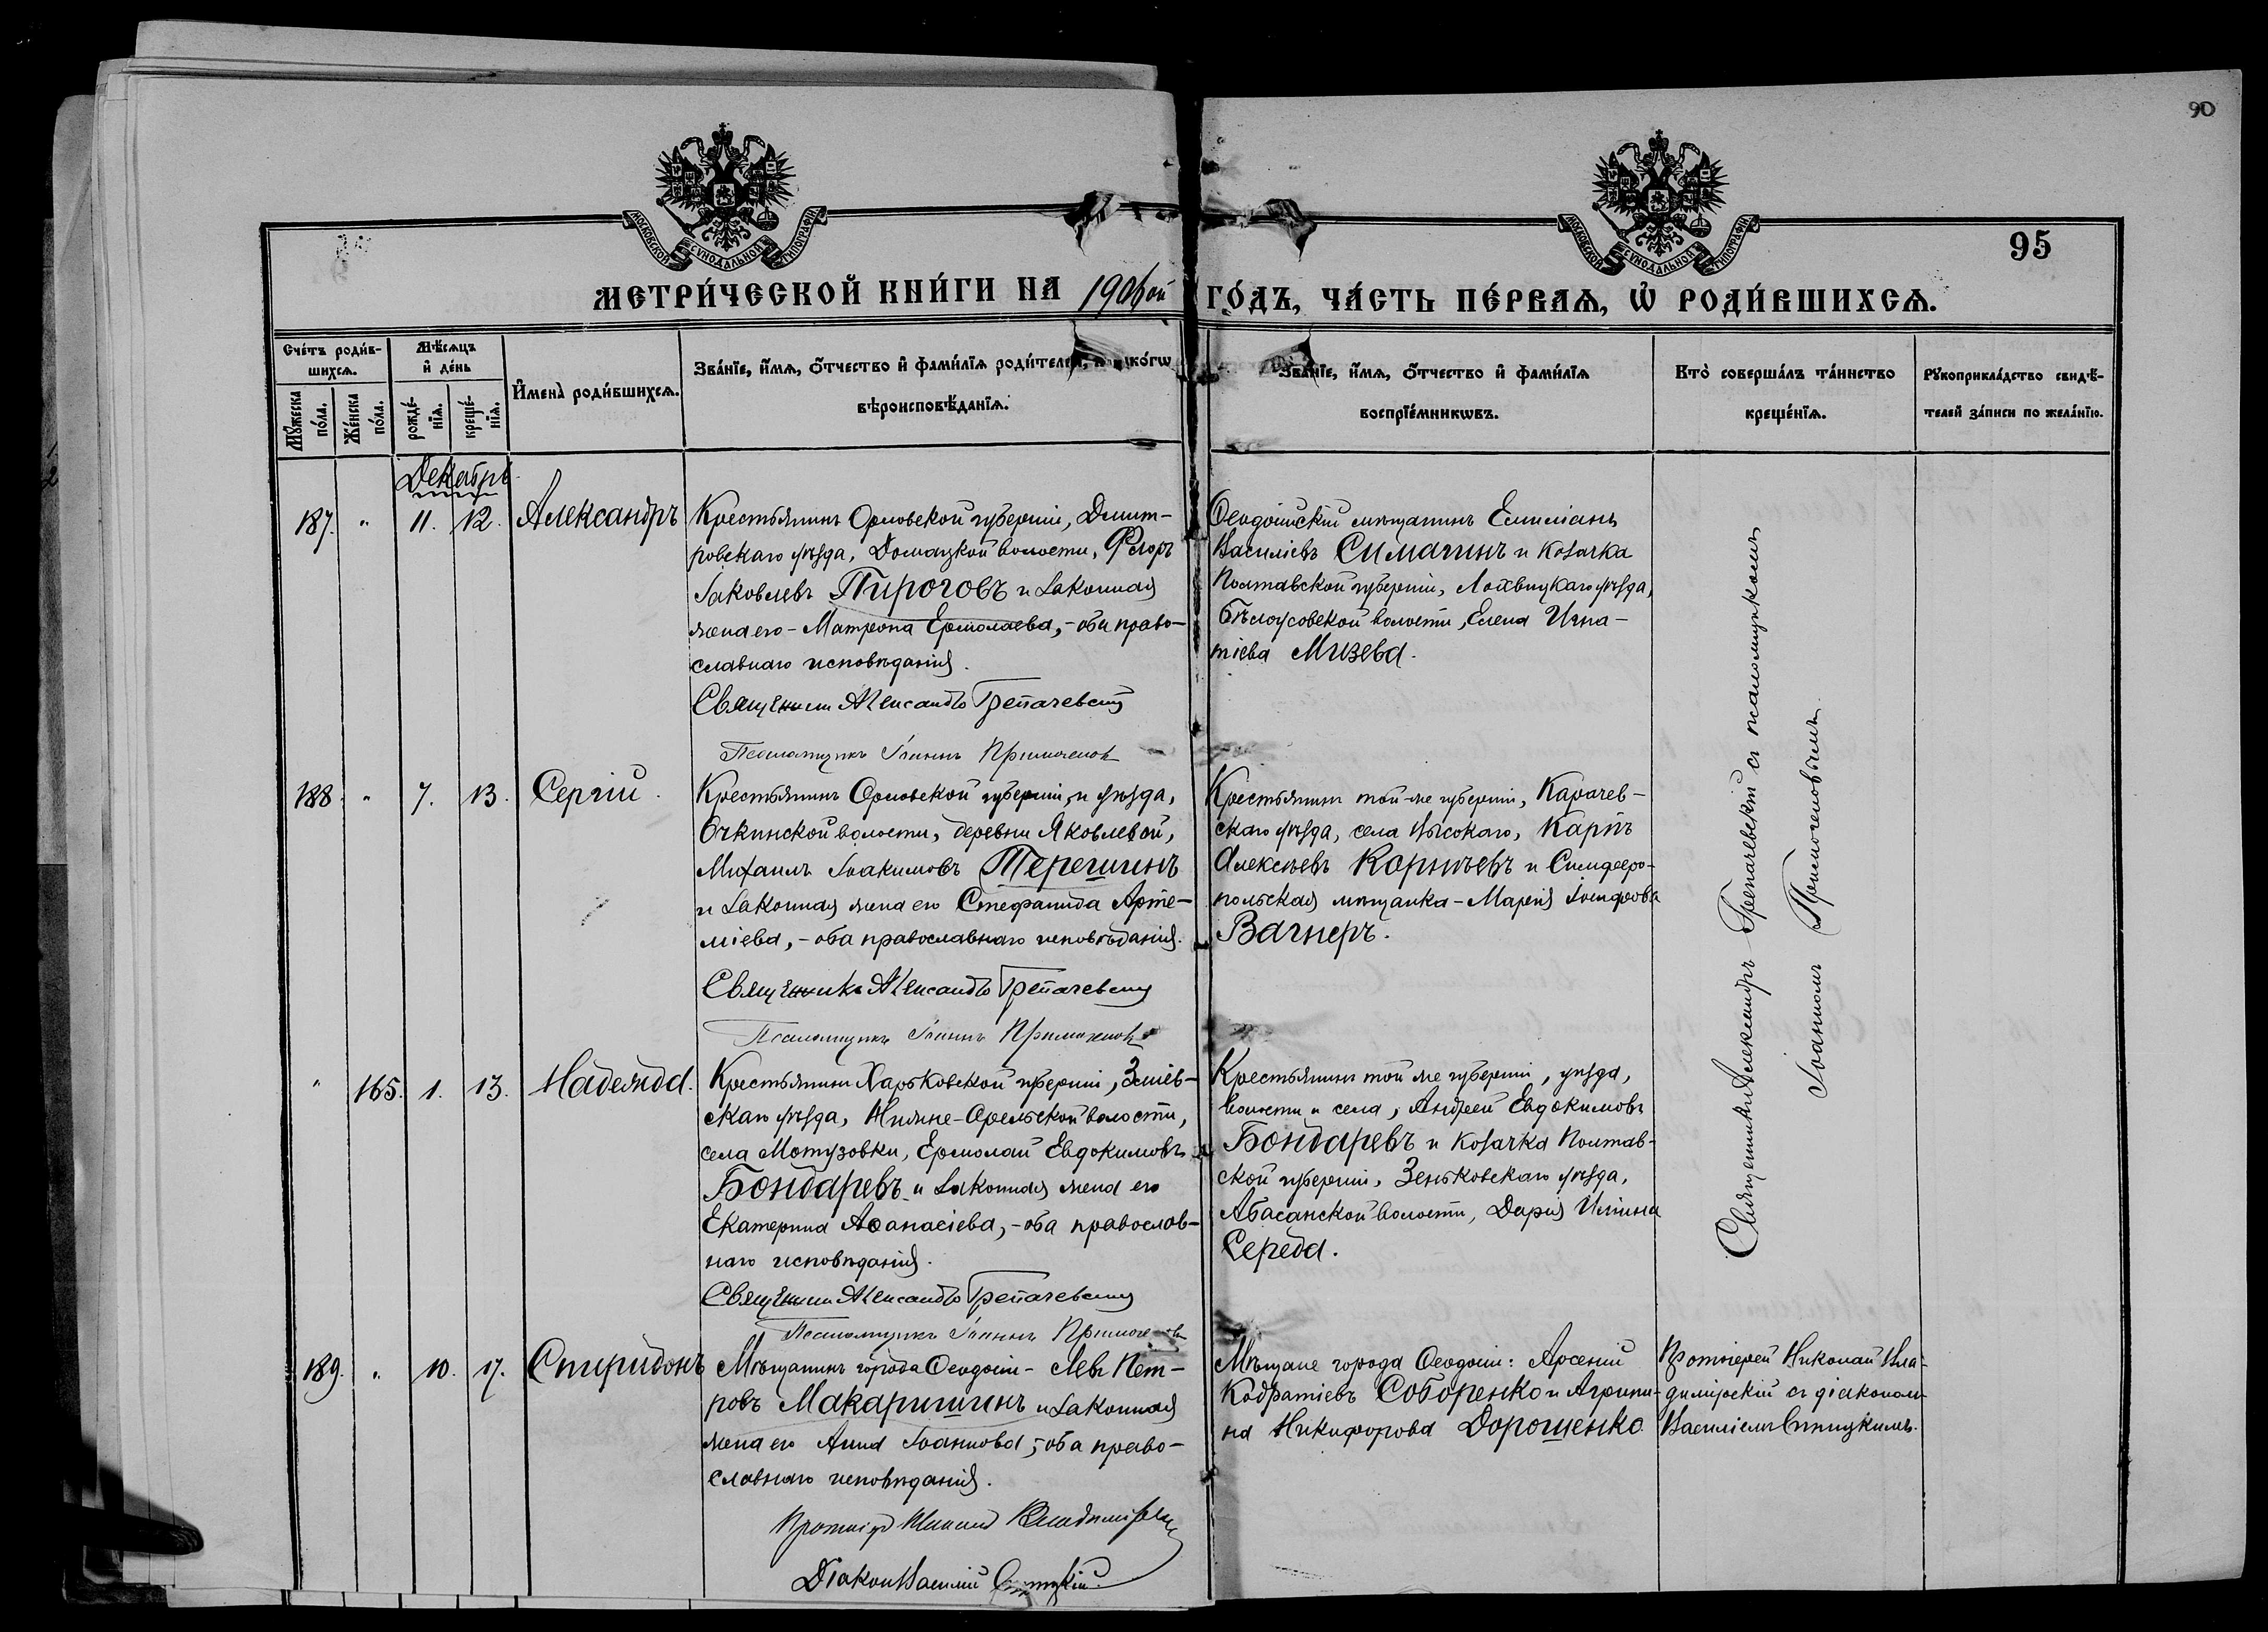 90
МОСКОВСКОЙ СѴНОДАЛЬНОЙ ТИПОГРАФІИ
МОСКОВСКОЙ СѴНОДАЛЬНОЙ ТИПОГРАФІИ
95
МЕТРИ́ЧЕСКОЙ КНИ́ГИ НА 1906ой ГО́ДЪ, ЧА́СТЬ ПЕ́РВАѦ, Ѡ҆ РОДИ́ВШИХСѦ.
Сче́тъ роди́в-
шихсѧ.
Мꙋ́жеска по́ла.
Же́нска по́ла.
Мѣ́сѧцъ
и҆ де́нь
рожде́-
нїѧ.
креще́-
нїѧ.
И҆мена̀ роди́вшихсѧ.
Зва́нїе, и҆́мѧ, ѻ҆́тчество и҆ фами́лїѧ роди́телей, и҆ како́гѡ
вѣроисповѣ́данїѧ.
Зва́нїе, и҆́мѧ, ѻ҆́тчество и҆ фами́лїѧ
воспрїе́мникѡвъ.
Кто̀ соверша́лъ та́инство
креще́нїѧ.
Рꙋкоприкла́дство свидѣ́-
телей за́писи по жела́нїю.
Декабрь.
187. " 11. 12. Александръ
Крестьянинъ Орловской губерніи, Дмит-
ровскаго уѣзда, Домацкой волости, Флоръ
Іаковлевъ Пироговъ и законная
жена его - Матрона Ермолаева, - оба право-
славнаго исповѣданія.
Священникъ Александръ Трепачевскій
Псаломщикъ Іоаннъ Примогеновъ
Ѳеодосійскій мѣщанинъ Емиліанъ
Василіевъ Симагинъ и козачка
Полтавской губерніи, Лохвицкаго уѣзда,
Бѣлоусовской волости, Елена Игна-
тіева Мизева.
188. " 7. 13. Сергій.
Крестьянинъ Орловской губерніи, и уѣзда,
деревни Яковлевой,
Михаилъ Іоакимовъ Терешинъ
и законная жена его Стефанида Арте-
міева, - оба православнаго исповѣданія.
Священникъ Александръ Трепачевскій
Псаломщикъ Іоаннъ Примогеновъ
Крестьянинъ той-же губерніи, Карачев-
скаго уѣзда, села Высокаго, Карпъ
Алексѣевъ Корнѣевъ и Симферо-
польская мѣщанка - Марія Іосифова
Вагнеръ.
" 165. 1. 13. Надежда.
Крестьянинъ Харьковской губерніи, Зміев-
скаго уѣзда, Нижне-Орельской волости,
села Мотузовки, Ермолай Евдокимовъ
Бондаревъ и законная жена его
Екатерина Аѳанасіева, - оба православ-
наго исповѣданія.
Священникъ Александръ Трепачевскій
Псаломщикъ Іоаннъ Примогеновъ
Крестьянинъ той же губерніи, уѣзда,
волости и села, Андрей Евдокимовъ
Бондаревъ и козачка Полтав-
ской губерніи, Зеньковскаго уѣзда,
волости, Дарія Иліина
Середа.
Священникъ Александръ Трепачевскій съ псаломщикомъ
Іоанномъ Примогеновымъ.
189. " 10. 17. Спиридонъ
Мѣщанинъ города Ѳеодосіи - Левъ Пет-
ровъ Макаришинъ и законная
жена его Анна Іоаннова; оба право-
славнаго исповѣданія.
Протоіерей Николай Владимірскій
Діаконъ Василій
Мѣщане города Ѳеодосіи: Арсеній
Кодратіевъ Соборенко и Агрипи-
на Никифорова Дорошенко
Протоіерей Николай Вла-
димірскій съ діакономъ
Василіемъ